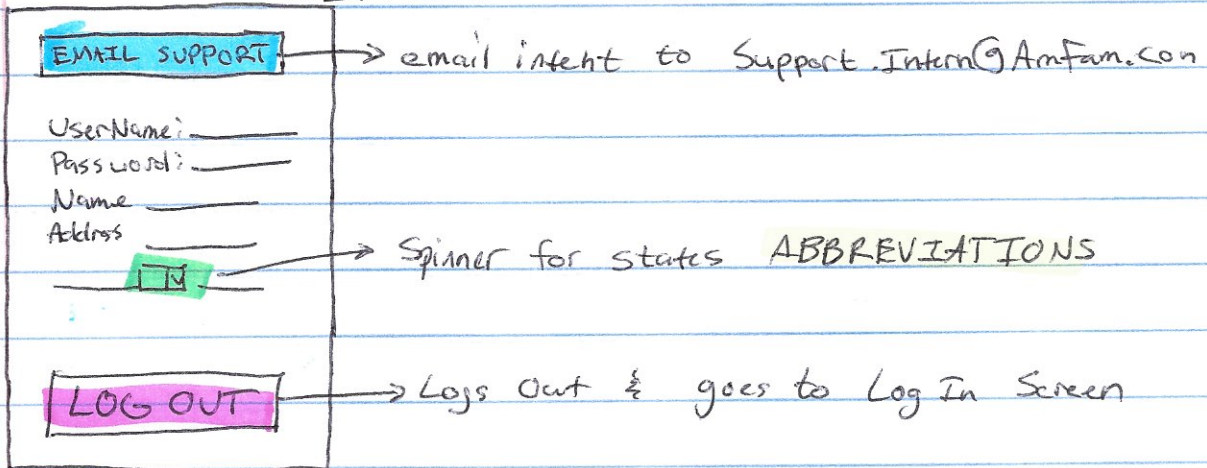 EMAIL SUPPORT → email intent to Support.Intern@AmFam.con
UserName:
Password:
Name
Address
Spinner for states ABBREVIATIONS
LOG OUT → Logs Out & goes to Log In Screen